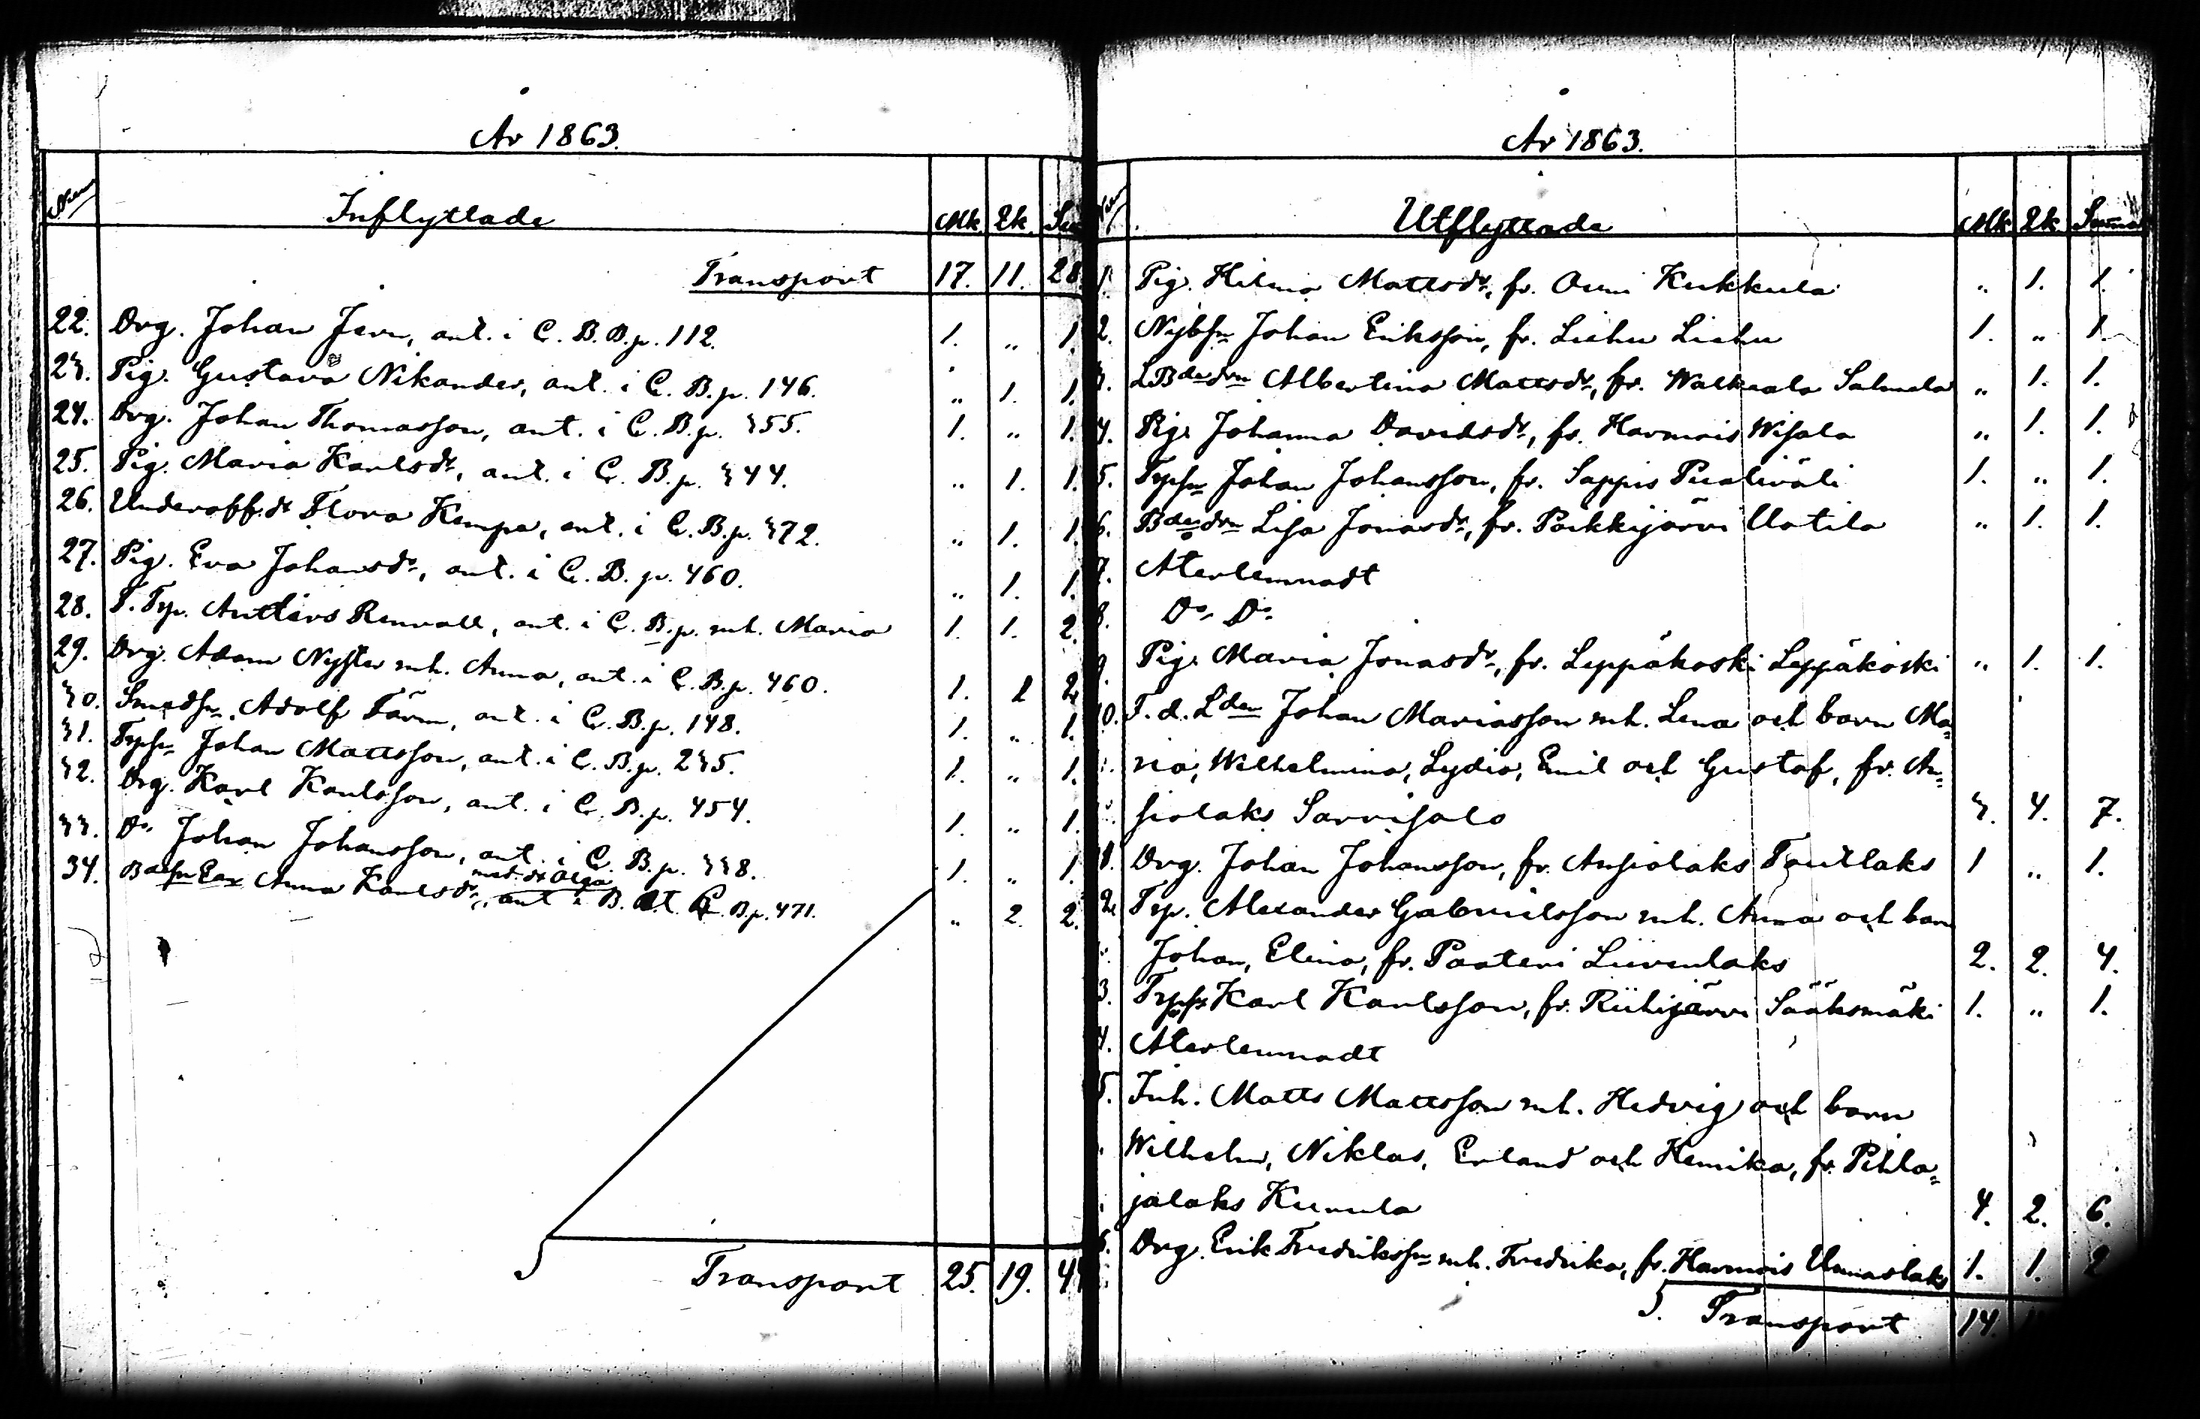 År 1863.
Num
Inflyttade
Mk. Qk. Sum
Transport 17. 11. 28.
22. Drg. Johan Jern, ant. i C. B. B. p. 112. 1. „ 1.
23. Pig. Gustava Nikander, ant. i C. B. p. 146. „ 1. 1.
24. Drg. Johan Thomasson, ant. i C. B. p. 355. 1. „ 1.
25. Pig. Maria Karlsdr, ant. i C. B. p. 344. „ 1. 1.
26. Underoff.dr Flora Kempe, ant. i C. B. p. 372. „ 1. 1.
27. Pig. Eva Johansdr, ant. i C. B. p. 460. „ 1. 1.
28. T. Trp. Anders Renvall, ant. i C. B. p. mh. Maria 1. 1. 2.
29. Drg. Adam Nyster mh. Anna, ant. i C. B. p. 460. 1. 1 2
30. Smedsn Adolf Färm, ant. i C. B. p. 148. 1. „ 1.
31. Trpsn Johan Mattsson, ant. i C. B. p. 235. 1. „ 1.
32. Drg. Karl Karlsson, ant. i C. B. p. 454. 1. „ 1.
33. Do Johan Johansson, ant. i C. B. p. 338. 1. „ 1.
med dr Olga
34. Enx Anna Karlsdr, ant i B. C. B. p. 471. „ 2. 2.
Transport 25. 19. 44
År 1863.
Utflyttade
Mk. Qk. Summa
1. Pig. Hilma Mattsdr, fr. Ouni Kukkula „ 1. 1.
2. Nybsn Johan Eriksson, fr. Liehu Liehu 1. „ 1.
3. LBdedrn Albertina Mattsdr, fr. Walkeala Salmela „ 1. 1.
4. Pig. Johanna Davidsdr, fr. Harmois Wisala „ 1. 1.
5. Trpsn Johan Johansson, fr. Sappis Pualiväli 1. „ 1.
6. Bdedrn Lisa Jonasdr, fr. Porkkijärvi Uotila „ 1. 1.
7. Återlemnadt
8. Do Do
9. Pig. Maria Jonasdr, fr. Leppäkoski Leppäkoski „ 1. 1.
10. F. d. Lden Johan Mariasson mh. Lena och barn Ma=
ria, Wilhelmina, Lydia, Emil och Gustaf, fr. An=
siolaks Sarvisalo 3. 4. 7.
1. Drg. Johan Johansson, fr. Ansiolaks Toritlaks 1 „ 1.
2. Trp. Alexander Gabrielsson mh. Anna och barn
Johan, Elina, fr. Paateri Liivenlaks 2. 2. 4.
3. Trpsn Karl Karlsson, fr. Riihijärvi Sääksmäki 1. „ 1.
4. Återlemnadt
5. Inh. Matts Mattsson mh. Hedvig och barn
Wilhelm, Niklas, Erland och Henrika, fr. Pihla=
jalaks Kumula 4. 2. 6.
6. Drg. Erik Fredrikssn mh. Fredrika, fr. Harmois Unnaslaks 1. 1. 2
Transport 14.